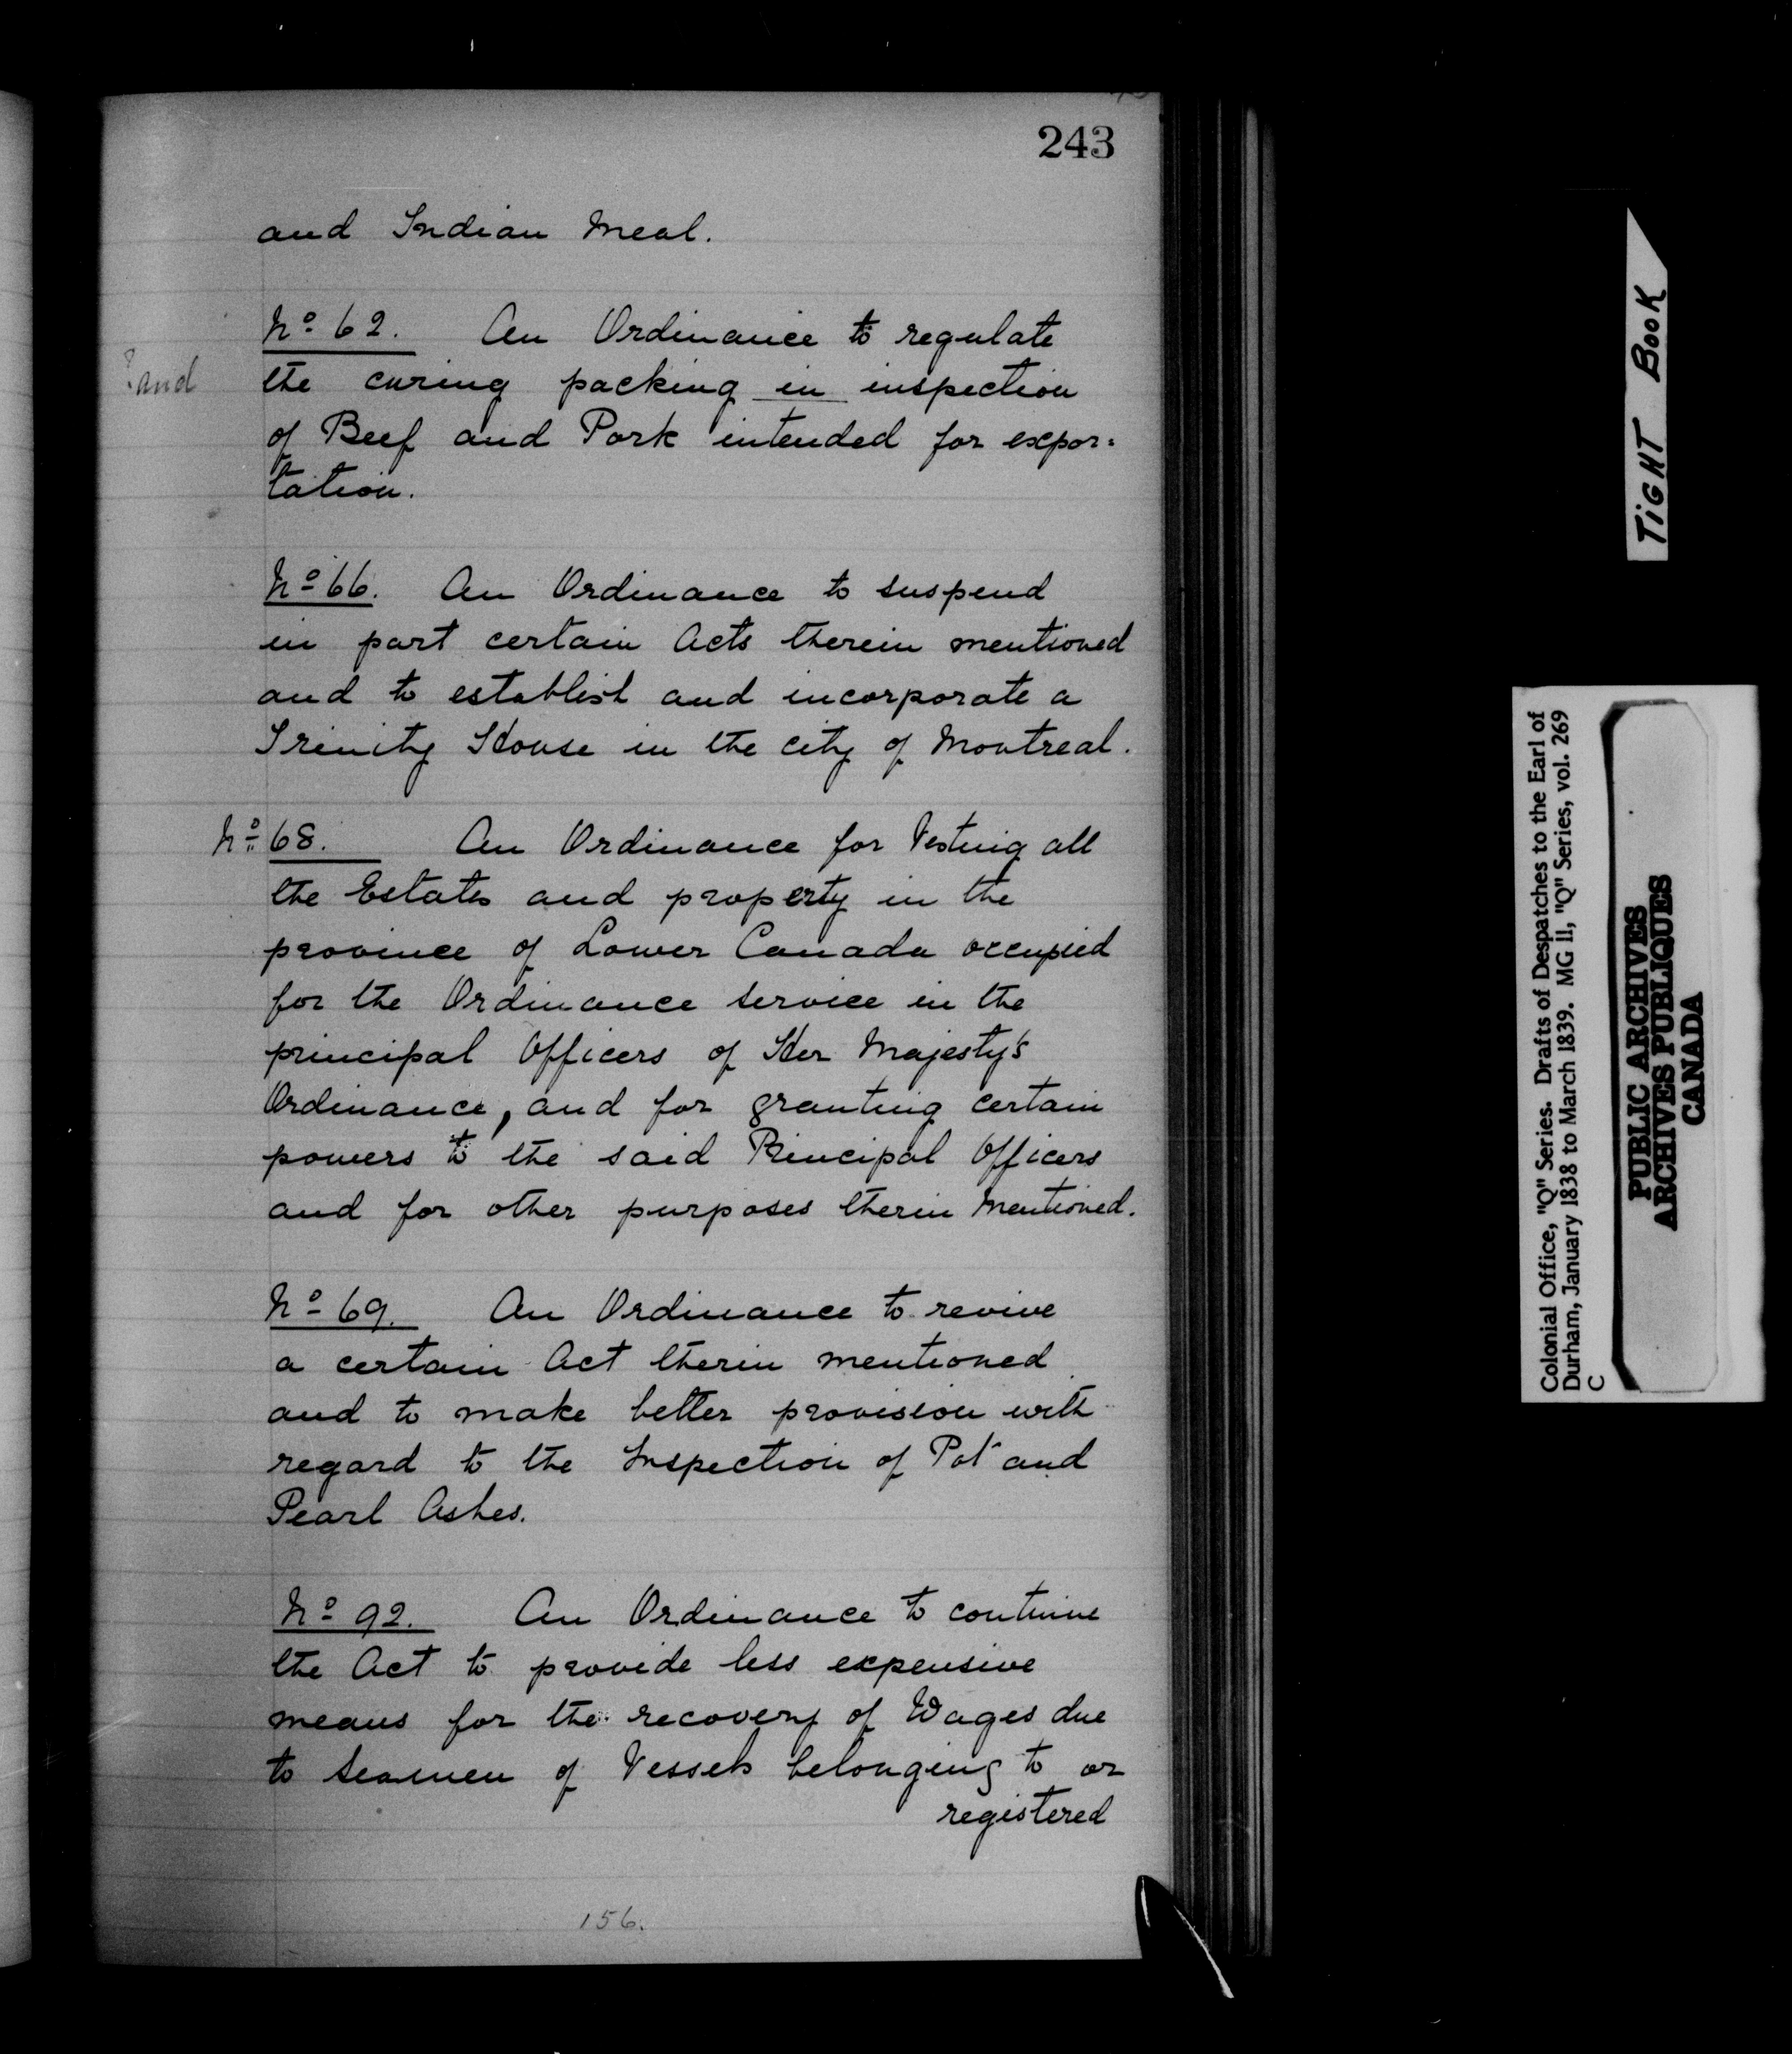 243
and Indian Meal.
No 62. An Ordinance to regulate
?and
the curing packing in inspection
of Beef and Pork intended for expor=
tation.
No 66. An Ordinance to suspend
in part certain Acts therein mentioned
and to establish and incorporate a
Trinity House in the city of Montreal.
No 68. An Ordinance for Vesting all
the Estates and property in the
province of Lower Canada occupied
for the Ordinance service in the
principal Officers of Her Majesty's
Ordinance, and for granting certain
powers to the said Principal Officers
and for other purposes therein mentioned.
No 69. An Ordinance to revive
a certain Act therein mentioned
and to make better provision with
regard to the Inspection of Pot and
Pearl Ashes.
No 92. An Ordinance to continue
the Act to provide less expensive
means for the recovery of Wages due
to Seamen of Vessels belonging to or
registered
156.
TIGHT BOOK
Colonial Office, "Q" Series. Drafts of Despatches to the Earl of
Durham, January 1838 to March 1839. MG 11, "Q" Series, vol. 269
C
PUBLIC ARCHIVES
ARCHIVES PUBLIQUES
CANADA